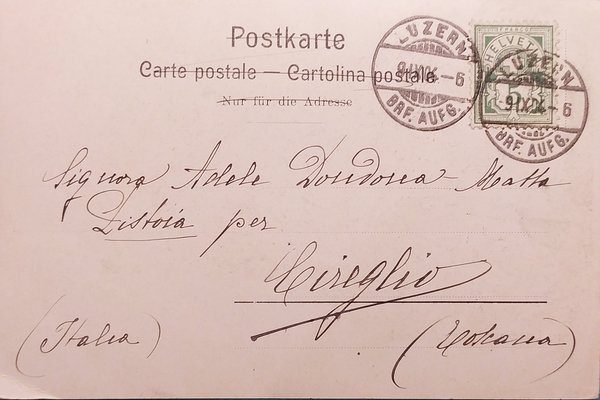 Postkarte
Carte postale — Cartolina postale
Nur für die Adresse
LUZERN
9.IX.04–6
BRF. AUFG.
FRANCO
HELVETIA
5
LUZERN
9.IX.04–6
BRF. AUFG.
Signora Adele Dondorea - Matta
Pistoia per
Cireglio
(Italia)
(Toscana)